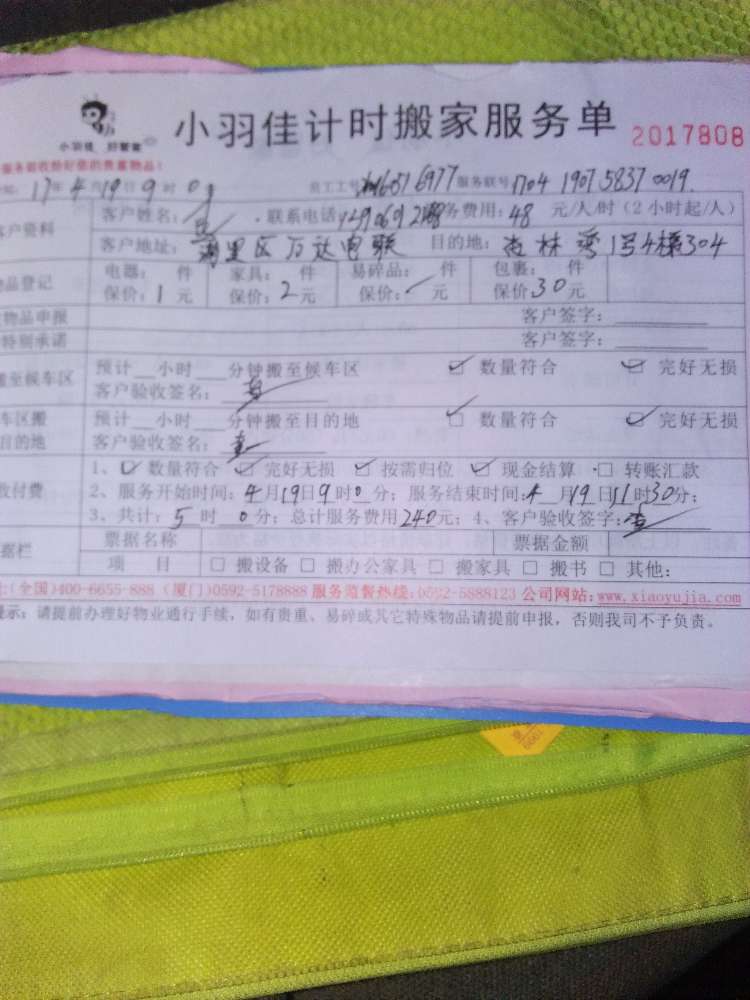 小羽佳计时搬家服务单 2017808
小羽佳 好管家
服务前收拾好您的贵重物品!
17年4月19日9时0分 员工工号 服务联号1704 1907 5837 0019
客户资料 客户姓名: 联系电话: 服务费用:48元/人/时(2小时起/人)
客户地址:湖里区万达 目的地:杏林湾1号4栋304
物品登记 电器: 件 家具: 件 易碎品: 件 包裹: 件
保价:1元 保价:2元 保价: 元 保价30元
物品申报 客户签字:
特别承诺 客户签字:
搬至候车区 预计__小时__分钟搬至候车区 ☑ 数量符合 ☑ 完好无损
客户验收签名:
车区搬 预计__小时__分钟搬至目的地 ☑ 数量符合 ☑ 完好无损
目的地 客户验收签名:
收付费 1、☑ 数量符合 ☑ 完好无损 ☑ 按需归位 ☑ 现金结算 □ 转账汇款
2、服务开始时间:4月19日9时0分;服务结束时间:4月19日11时30分;
3、共计:5时0分;总计服务费用240元;4、客户验收签字:
据栏 票据名称 票据金额
项 目 □ 搬设备 □ 搬办公家具 □ 搬家具 □ 搬书 □ 其他:
(全国)400-6655-888 (厦门)0592-5178888 服务监督热线:0592-5888123 公司网站:www.xiaoyujia.com
提示:请提前办理好物业通行手续,如有贵重、易碎或其它特殊物品请提前申报,否则我司不予负责。